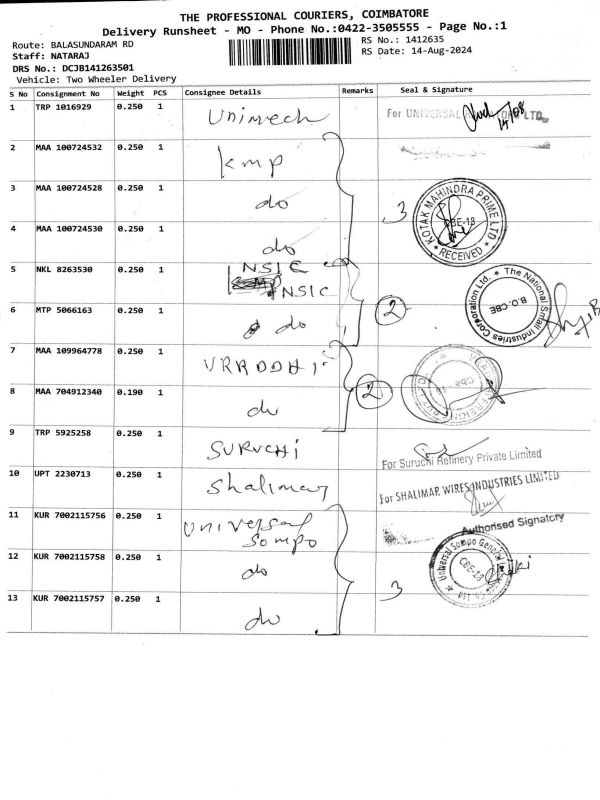 THE PROFESSIONAL COURIERS, COIMBATORE
Delivery Runsheet - MO - Phone No.:0422-3505555 - Page No.:1
Route: BALASUNDARAM RD
Staff: NATARAJ
DRS No.: DCJB141263501
Vehicle: Two Wheeler Delivery
RS No.: 1412635
RS Date: 14-Aug-2024
S No Consignment No Weight PCS Consignee Details Remarks Seal & Signature
1 TRP 1016929 0.250 1 Unimech For UNIVERSAL LTD 14/08
2 MAA 100724532 0.250 1 kmp
3 MAA 100724528 0.250 1 do 3 KOTAK MAHINDRA PRIME LTD CBE-18 RECEIVED
4 MAA 100724530 0.250 1 do
5 NKL 8263530 0.250 1 NSIC
NSIC
The National Small Industries Corporation Ltd. B.O.CBE
6 MTP 5066163 0.250 1 do 2
7 MAA 109964778 0.250 1 VRRDDHI
8 MAA 704912340 0.190 1 do 2
9 TRP 5925258 0.250 1 SURUCHI For Suruchi Refinery Private Limited
10 UPT 2230713 0.250 1 Shalimar For SHALIMAR WIRES INDUSTRIES LIMITED
Authorised Signatory
11 KUR 7002115756 0.250 1 Universal
Sompo
Universal Sompo General CBE-18
12 KUR 7002115758 0.250 1 do
13 KUR 7002115757 0.250 1 do 3